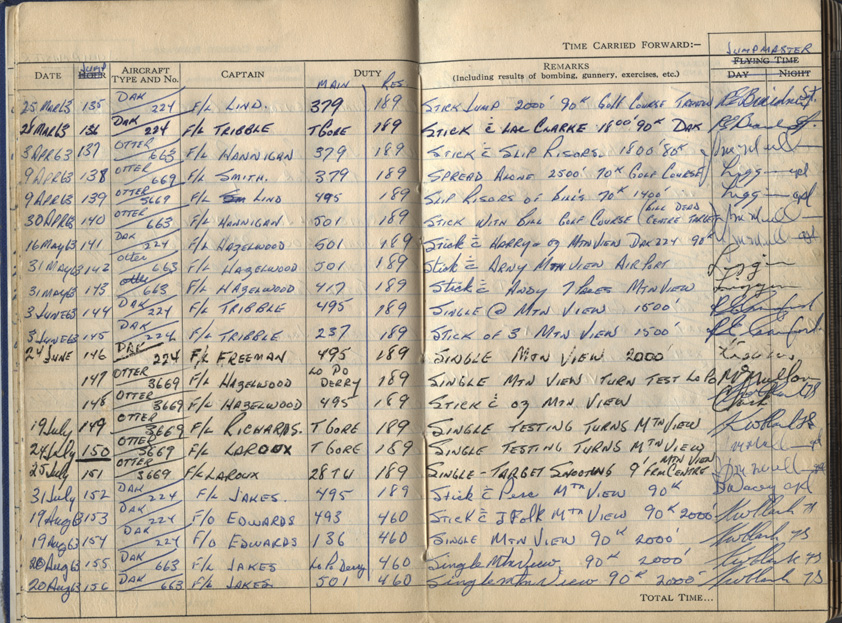 TIME CARRIED FORWARD:—
DATE JUMP HOUR AIRCRAFT TYPE AND No. CAPTAIN DUTY MAIN RES. REMARKS (Including results of bombing, gunnery, exercises, etc.) JUMPMASTER FLYING TIME DAY NIGHT
25 MAR 63 135 DAK 224 F/L LIND. 379 189 STICK JUMP 2000' 90K GOLF COURSE
28 MAR 63 136 DAK 224 F/L TRIBBLE T GORE 189 STICK C LAC CLARKE 1800' 90K DAK
3 APR 63 137 OTTER 663 F/L HANNIGAN 379 189 STICK C SLIP RISORS. 1800' 80K
9 APR 63 138 OTTER 669 F/L SMITH. 379 189 SPREAD ALONE 2500' 70K GOLF COURSE
9 APR 63 139 OTTER 3669 F/L LIND 495 189 SLIP RISORS OF BILL'S 70K 1400'
30 APR 63 140 OTTER 663 F/L HANNIGAN 501 189 STICK WITH BILL GOLF COURSE (BILL DEAD CENTRE TARGET)
16 MAY 63 141 DAK 224 F/L HAZELWOOD 501 189 STICK C HARRY - OZ MTN VIEW DAK 224 90K
31 MAY 63 142 OTTER 663 F/L HAZELWOOD 501 189 STICK C ARNY MTN VIEW AIRPORT
31 MAY 63 143 OTTER 663 F/L HAZELWOOD 417 189 STICK C ANDY MTN VIEW
3 JUNE 63 144 DAK 224 F/L TRIBBLE 495 189 SINGLE @ MTN VIEW 1500'
3 JUNE 63 145 DAK 224 F/L TRIBBLE 237 189 STICK OF 3 MTN VIEW 1500'
24 JUNE 146 DAK 224 F/L FREEMAN 495 189 SINGLE MTN VIEW 2000'
147 OTTER 3669 F/L HAZELWOOD LO PO DERRY 189 SINGLE MTN VIEW TURN TEST LO PO
148 OTTER 3669 F/L HAZELWOOD 495 189 STICK C OZ MTN VIEW
19 July 149 OTTER 3669 F/L RICHARDS. T GORE 189 SINGLE TESTING TURNS MTN VIEW
24 July 150 OTTER 3669 F/L LAROUX T GORE 189 SINGLE TESTING TURNS MTN VIEW
25 July 151 OTTER 3669 F/L LAROUX 28 TU 189 SINGLE - TARGET SHOOTING 9' FRM CENTRE MTN VIEW
31 July 152 DAK 224 F/L JAKES. 495 189 STICK C MTN VIEW 90K
19 Aug 63 153 DAK 224 F/O EDWARDS 493 460 STICK C J FOLK MTN VIEW 90K 2000'
19 Aug 63 154 DAK 224 F/O EDWARDS 136 460 SINGLE MTN VIEW 90K 2000'
20 Aug 63 155 DAK 663 F/L JAKES Lo Po Derry 460 Single Mtn View. 90K 2000'
20 Aug 63 156 DAK 663 F/L JAKES. 501 460 Single Mtn View 90K 2000'
TOTAL TIME...